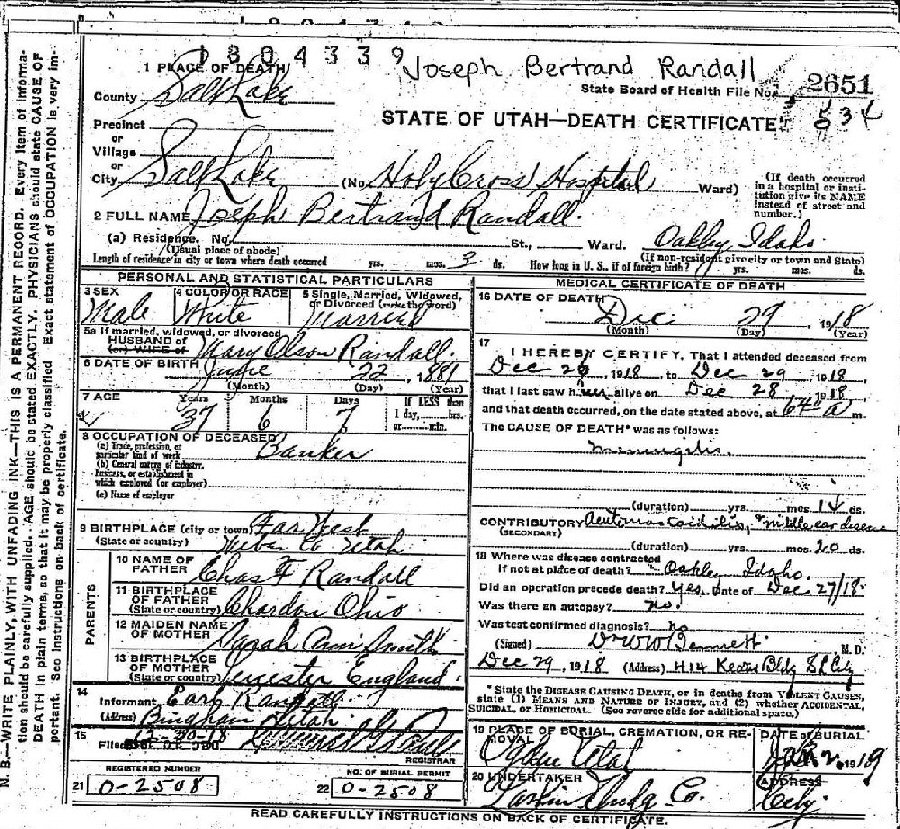 1304339
Joseph Bertrand Randall
1 PLACE OF DEATH
State Board of Health File No. 2651
County Salt Lake
STATE OF UTAH—DEATH CERTIFICATE
534
Precinct
or
Village
or
City Salt Lake (No. Holy Cross Hospital Ward)
(If death occurred in a hospital or institution give its NAME instead of street and number.)
2 FULL NAME Joseph Bertrand Randall
(a) Residence. No. St., Ward. Oakley, Idaho.
(Usual place of abode) (If non-resident give city or town and State)
Length of residence in city or town where death occurred yrs. mos. 3 ds. How long in U. S., if of foreign birth? yrs. mos. ds.
PERSONAL AND STATISTICAL PARTICULARS
3 SEX Male
4 COLOR OR RACE White
5 Single, Married, Widowed, or Divorced (write the word) Married
5a If married, widowed, or divorced
HUSBAND of
(or) WIFE of Mary Olson Randall.
6 DATE OF BIRTH June 22, 1881
(Month) (Day) (Year)
7 AGE Years 37 Months 6 Days 7 If LESS than 1 day, hrs. or min.
8 OCCUPATION OF DECEASED
(a) Trade, profession, or particular kind of work Banker
(b) General nature of industry, business, or establishment in which employed (or employer)
(c) Name of employer
9 BIRTHPLACE (city or town) Far West
(State or country) Weber Co. Utah
PARENTS
10 NAME OF FATHER Chas F Randall
11 BIRTHPLACE OF FATHER (State or country) Chardon Ohio
12 MAIDEN NAME OF MOTHER Sarah Ann Smith
13 BIRTHPLACE OF MOTHER (State or country) Leicester England
14 Informant Earl Randall
(Address) Bingham Utah
15 Filed 12-30-18
REGISTRAR
REGISTERED NUMBER
21 0-2508
NO. OF BURIAL PERMIT
22 0-2508
MEDICAL CERTIFICATE OF DEATH
16 DATE OF DEATH Dec 29 1918
(Month) (Day) (Year)
17 I HEREBY CERTIFY, That I attended deceased from
Dec 26, 1918 to Dec 29 1918,
that I last saw him alive on Dec 28 1918
and that death occurred, on the date stated above, at a m.
The CAUSE OF DEATH* was as follows:
Meningitis.
(duration) yrs. mos. 14 ds.
CONTRIBUTORY Acute mastoiditis, middle ear disease
(SECONDARY)
(duration) yrs. mos. 20 ds.
18 Where was disease contracted
if not at place of death? Oakley Idaho.
Did an operation precede death? Yes. Date of Dec 27/18.
Was there an autopsy? no.
What test confirmed diagnosis? no
(Signed) Dr W W Bennett M. D.
Dec 29, 1918 (Address) 414 Kearns Bldg S L City
*State the DISEASE CAUSING DEATH, or in deaths from VIOLENT CAUSES, state (1) MEANS AND NATURE OF INJURY, and (2) whether ACCIDENTAL, SUICIDAL, or HOMICIDAL. (See reverse side for additional space.)
19 PLACE OF BURIAL, CREMATION, OR REMOVAL Ogden Utah
DATE of BURIAL Jan 2 1919
20 UNDERTAKER Larkin Undg Co.
ADDRESS City
READ CAREFULLY INSTRUCTIONS ON BACK OF CERTIFICATE.
N. B.—WRITE PLAINLY, WITH UNFADING INK—THIS IS A PERMANENT RECORD. Every item of information should be carefully supplied. AGE should be stated EXACTLY. PHYSICIANS should state CAUSE OF DEATH in plain terms, so that it may be properly classified. Exact statement of OCCUPATION is very important. See instructions on back of certificate.